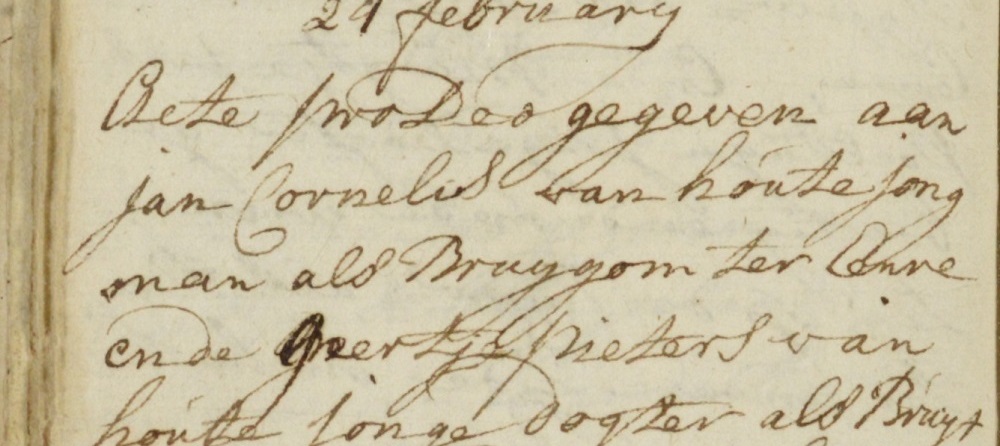 24 february
Acte pro Deo gegeven aan
jan Cornelis van houte jong
man als Bruygom ter Eenre
ende Geertje pieters van
houte jonge dogter als Bruyt